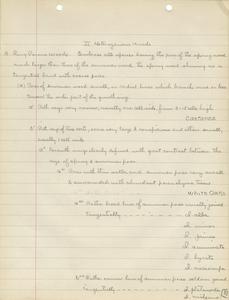 II Heterogeneous Woods
A. Ring Porous Woods. Conspicuous with
much larger than those of the summer wood, the spring wood showing as a
tangential band with coarse pores.
(a) Pores of summer wood small, in radial lines which branch more or less
toward the outer part of the growth ring.
1° Pith rays very narrow, usually one cell wide, from 2-12 cells high
Castanea
2° Pith rays of two sorts, some very large & conspicuous and others small,
usually 1 cell wide.
3° Growth rings clearly defined with great contrast between the
size of spring & summer pores.
4° Pores with thin walls and summer pores very small
& surrounded with abundant parenchyma tissue
White Oaks
5° Radial lines of summer pores usually joined
tangentially - - - - - - Q. alba
Q. minor
Q. prinus
Q. acuminata
Q. lyrata
Q. macrocarpa
5° Radial lines of summer pores seldom joined
tangentially - - - - - Q. platanoides